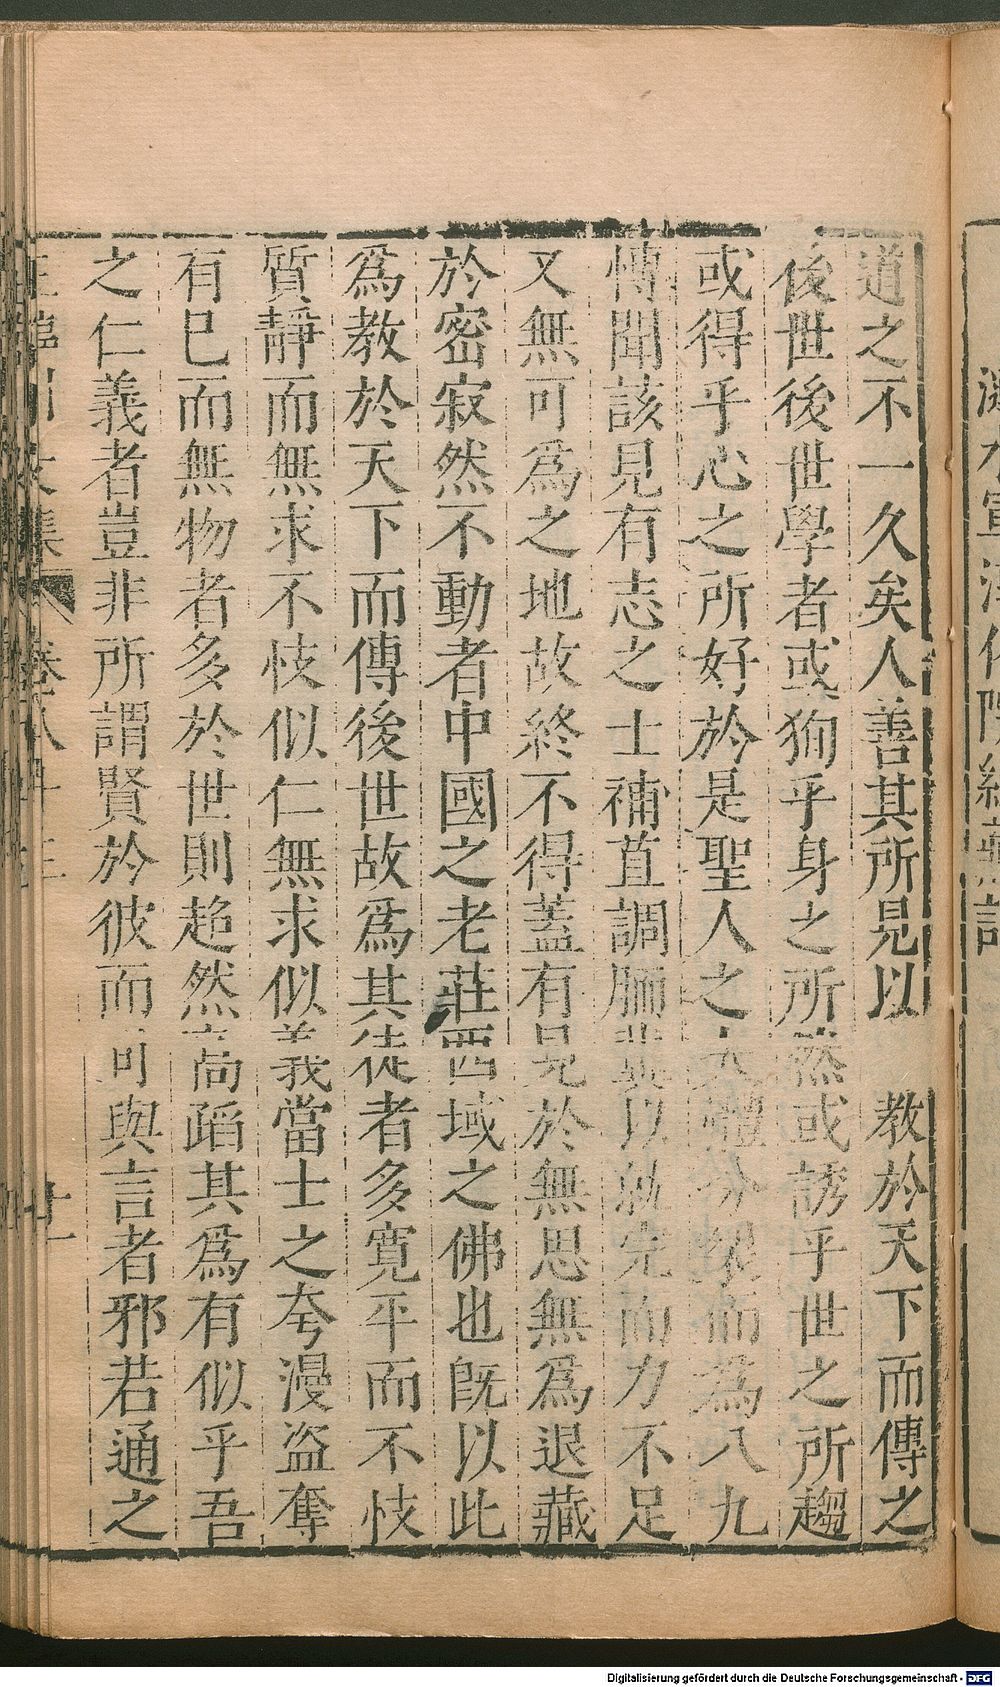 道之不一久矣人善其所見以教於天下而傳之
後世後世學者或狥乎身之所然或誘乎世之所趨
或得乎心之所好於是聖人之大體分裂而爲八九
博聞該見有志之士補苴調胹冀以就完而力不足
又無可爲之地故終不得蓋有見於無思無爲退藏
於密寂然不動者中國之老莊西域之佛也旣以此
爲教於天下而傳後世故爲其徒者多寬平而不忮
質靜而無求不忮似仁無求似義當士之夸漫盜奪
有巳而無物者多於世則超然高蹈其爲有似乎吾
之仁義者豈非所謂賢於彼而可與言者邪若通之
王臨川文集 卷八十三 廿一
Digitalisierung gefördert durch die Deutsche Forschungsgemeinschaft - DFG